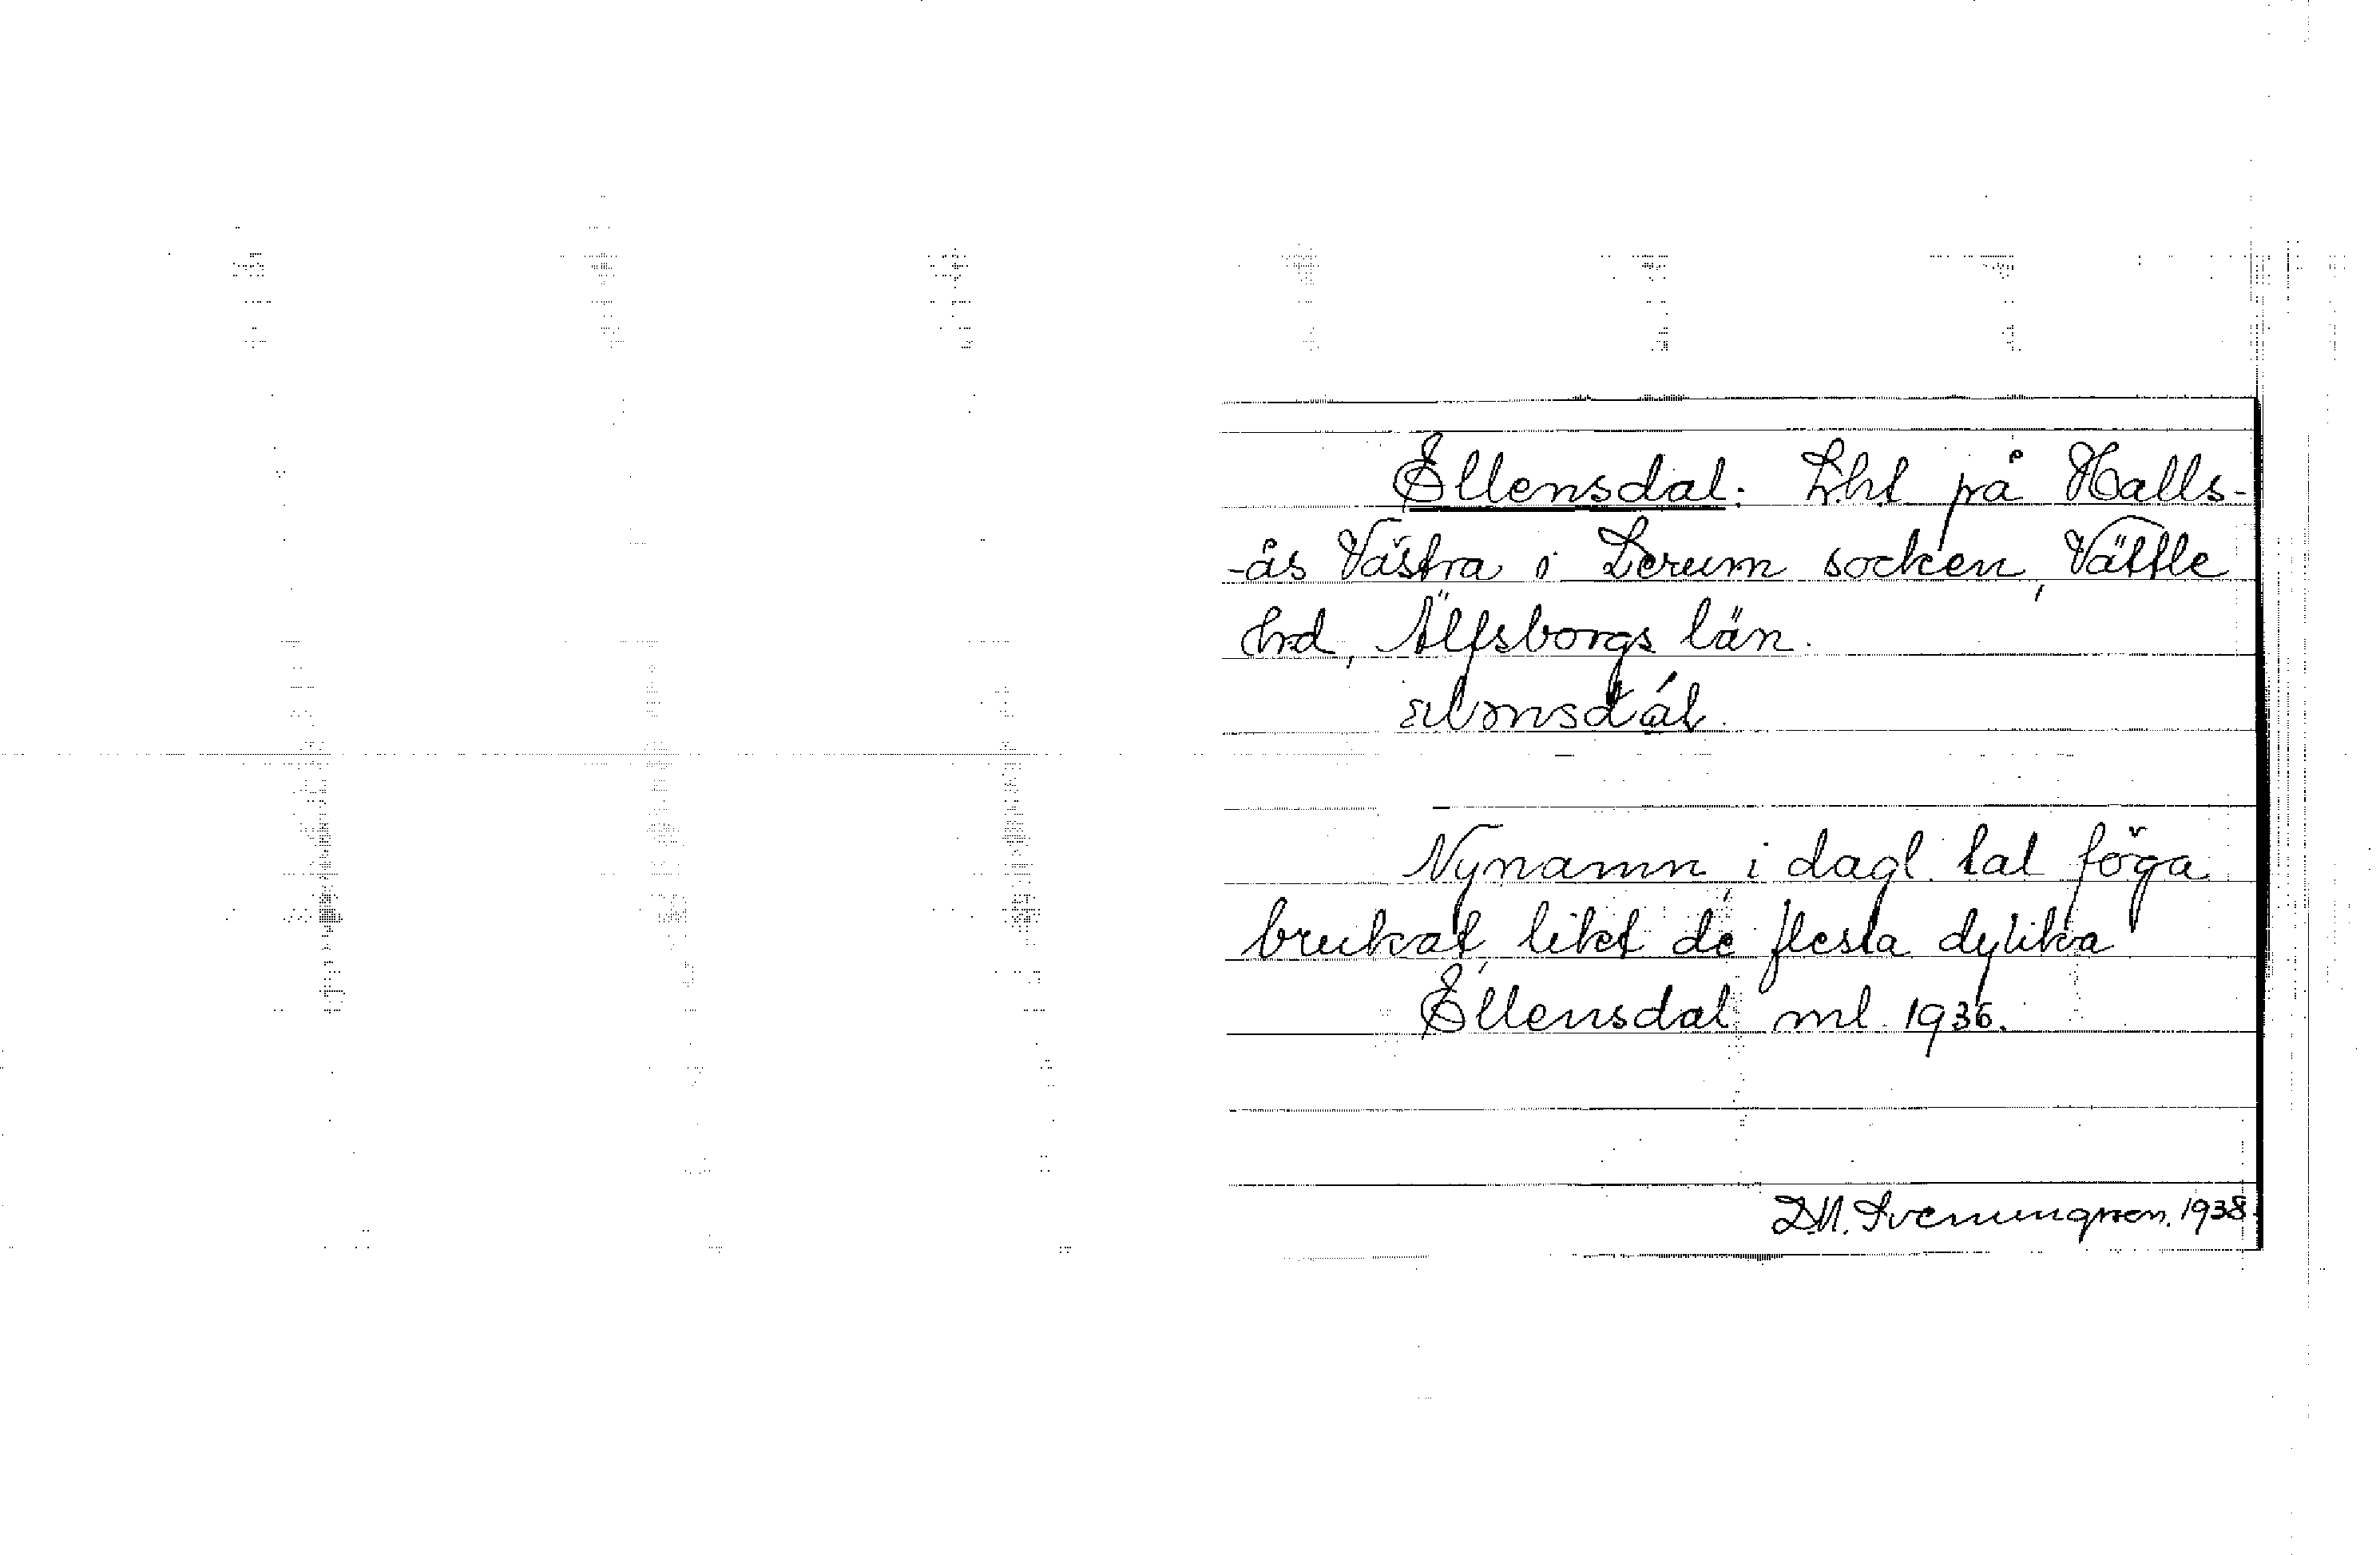 Ellensdal. Lht på Halls-
-ås Västra i Lerum socken, Vättle
hrd, Älfsborgs län.
Nynamn i dagl. tal föga
brukat, likt de flesta dylika
Ellensdal ml. 1936.
D.M. Svenungsson. 1938.